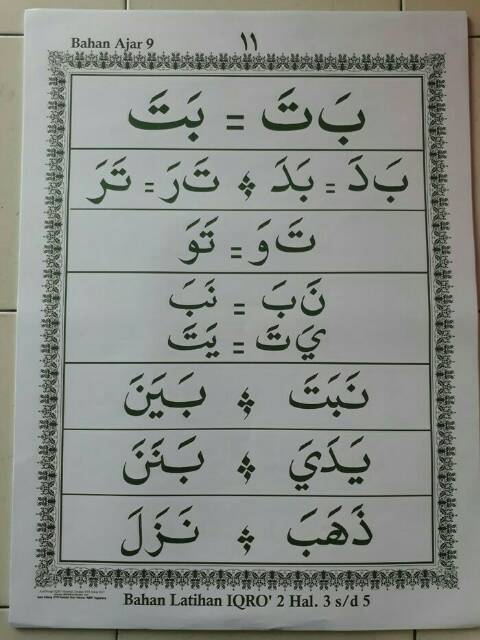 Bahan Ajar 9
١١
بَ تَ = بَتَ
بَ دَ = بَدَ ؞ تَ رَ = تَرَ
تَ وَ = تَوَ
نَ بَ = نَبَ
يَ تَ = يَتَ
نَبَتَ ؞ بَيَنَ
يَدَيَ ؞ بَنَنَ
ذَهَبَ ؞ نَزَلَ
Bahan Latihan IQRO' 2 Hal. 3 s/d 5